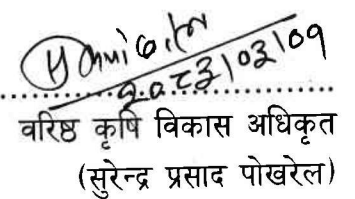 २०८३।०३।०१
वरिष्ठ कृषि विकास अधिकृत
(सुरेन्द्र प्रसाद पोखरेल)